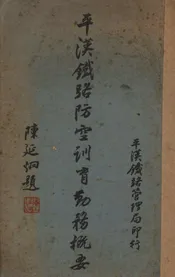 平漢鐵路防空訓育勤務概要
平漢鐵路管理局印行
陳延炯題